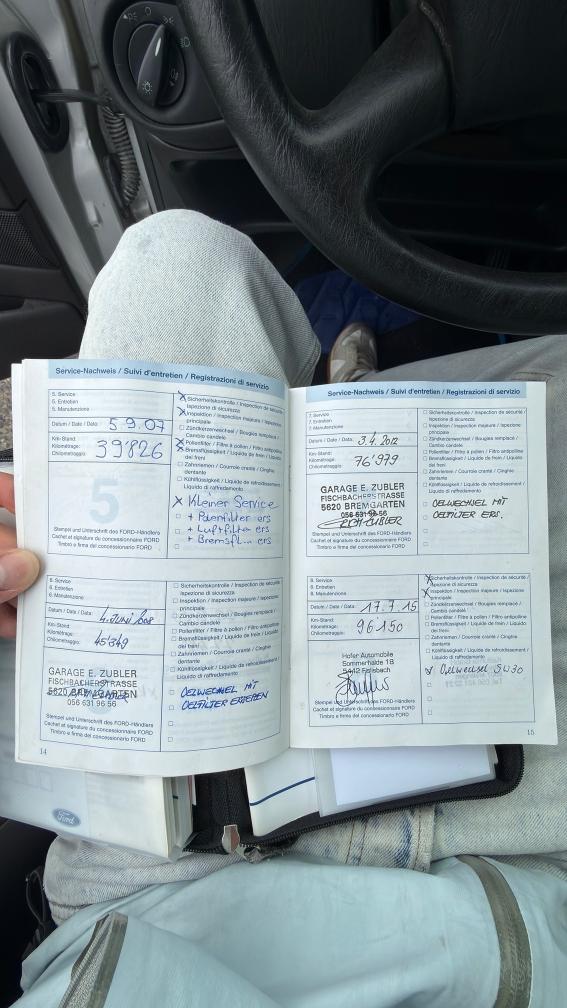 Service-Nachweis / Suivi d'entretien / Registrazioni di servizio
5. Service
5. Entretien
5. Manutenzione
Datum / Date / Data: 5.9.07
Km-Stand:
Kilométrage: 39'826
Chilometraggio:
5
Stempel und Unterschrift des FORD-Händlers
Cachet et signature du concessionnaire FORD
Timbro e firma del concessionario FORD
X Sicherheitskontrolle / Inspection de sécurité /
Ispezione di sicurezza
X Inspektion / Inspection majeure / Ispezione
principale
Zündkerzenwechsel / Bougies remplacées /
Cambio candele
X Pollenfilter / Filtre à pollen / Filtro antipolline
X Bremsflüssigkeit / Liquide de freins / Liquido
dei freni
Zahnriemen / Courroie crantée / Cinghia
dentata
Kühlflüssigkeit / Liquide de refroidissement /
Liquido di raffreddamento
X Kleiner Service
+ Pollenfilter ers
+ Luftfilter ers
+ Bremsfl... ers
6. Service
6. Entretien
6. Manutenzione
Datum / Date / Data: 4. JUNI 2008
Km-Stand:
Kilométrage: 45'349
Chilometraggio:
GARAGE E. ZUBLER
FISCHBACHERSTRASSE
5620 BREMGARTEN
056 631 96 56
Stempel und Unterschrift des FORD-Händlers
Cachet et signature du concessionnaire FORD
Timbro e firma del concessionario FORD
Sicherheitskontrolle / Inspection de sécurité /
Ispezione di sicurezza
Inspektion / Inspection majeure / Ispezione
principale
Zündkerzenwechsel / Bougies remplacées /
Cambio candele
Pollenfilter / Filtre à pollen / Filtro antipolline
Bremsflüssigkeit / Liquide de freins / Liquido
dei freni
Zahnriemen / Courroie crantée / Cinghia
dentata
Kühlflüssigkeit / Liquide de refroidissement /
Liquido di raffreddamento
OELWECHSEL MIT
OELFILTER
14
Service-Nachweis / Suivi d'entretien / Registrazioni di servizio
7. Service
7. Entretien
7. Manutenzione
Datum / Date / Data: 3.4.2012
Km-Stand:
Kilométrage: 76'979
Chilometraggio:
GARAGE E. ZUBLER
FISCHBACHERSTRASSE
5620 BREMGARTEN
056 631 96 56
Stempel und Unterschrift des FORD-Händlers
Cachet et signature du concessionnaire FORD
Timbro e firma del concessionario FORD
Sicherheitskontrolle / Inspection de sécurité /
Ispezione di sicurezza
Inspektion / Inspection majeure / Ispezione
principale
Zündkerzenwechsel / Bougies remplacées /
Cambio candele
Pollenfilter / Filtre à pollen / Filtro antipolline
Bremsflüssigkeit / Liquide de freins / Liquido
dei freni
Zahnriemen / Courroie crantée / Cinghia
dentata
Kühlflüssigkeit / Liquide de refroidissement /
Liquido di raffreddamento
OELWECHSEL MIT
OELFILTER ERS.
8. Service
8. Entretien
8. Manutenzione
Datum / Date / Data: 17.7.15
Km-Stand:
Kilométrage: 96150
Chilometraggio:
Hofer Automobile
Sommerhalde 1B
Stempel und Unterschrift des FORD-Händlers
Cachet et signature du concessionnaire FORD
Timbro e firma del concessionario FORD
X Sicherheitskontrolle / Inspection de sécurité /
Ispezione di sicurezza
X Inspektion / Inspection majeure / Ispezione
principale
Zündkerzenwechsel / Bougies remplacées /
Cambio candele
Pollenfilter / Filtre à pollen / Filtro antipolline
Bremsflüssigkeit / Liquide de freins / Liquido
dei freni
Zahnriemen / Courroie crantée / Cinghia
dentata
Kühlflüssigkeit / Liquide de refroidissement /
Liquido di raffreddamento
Oelwechsel 5W30
15
Ford